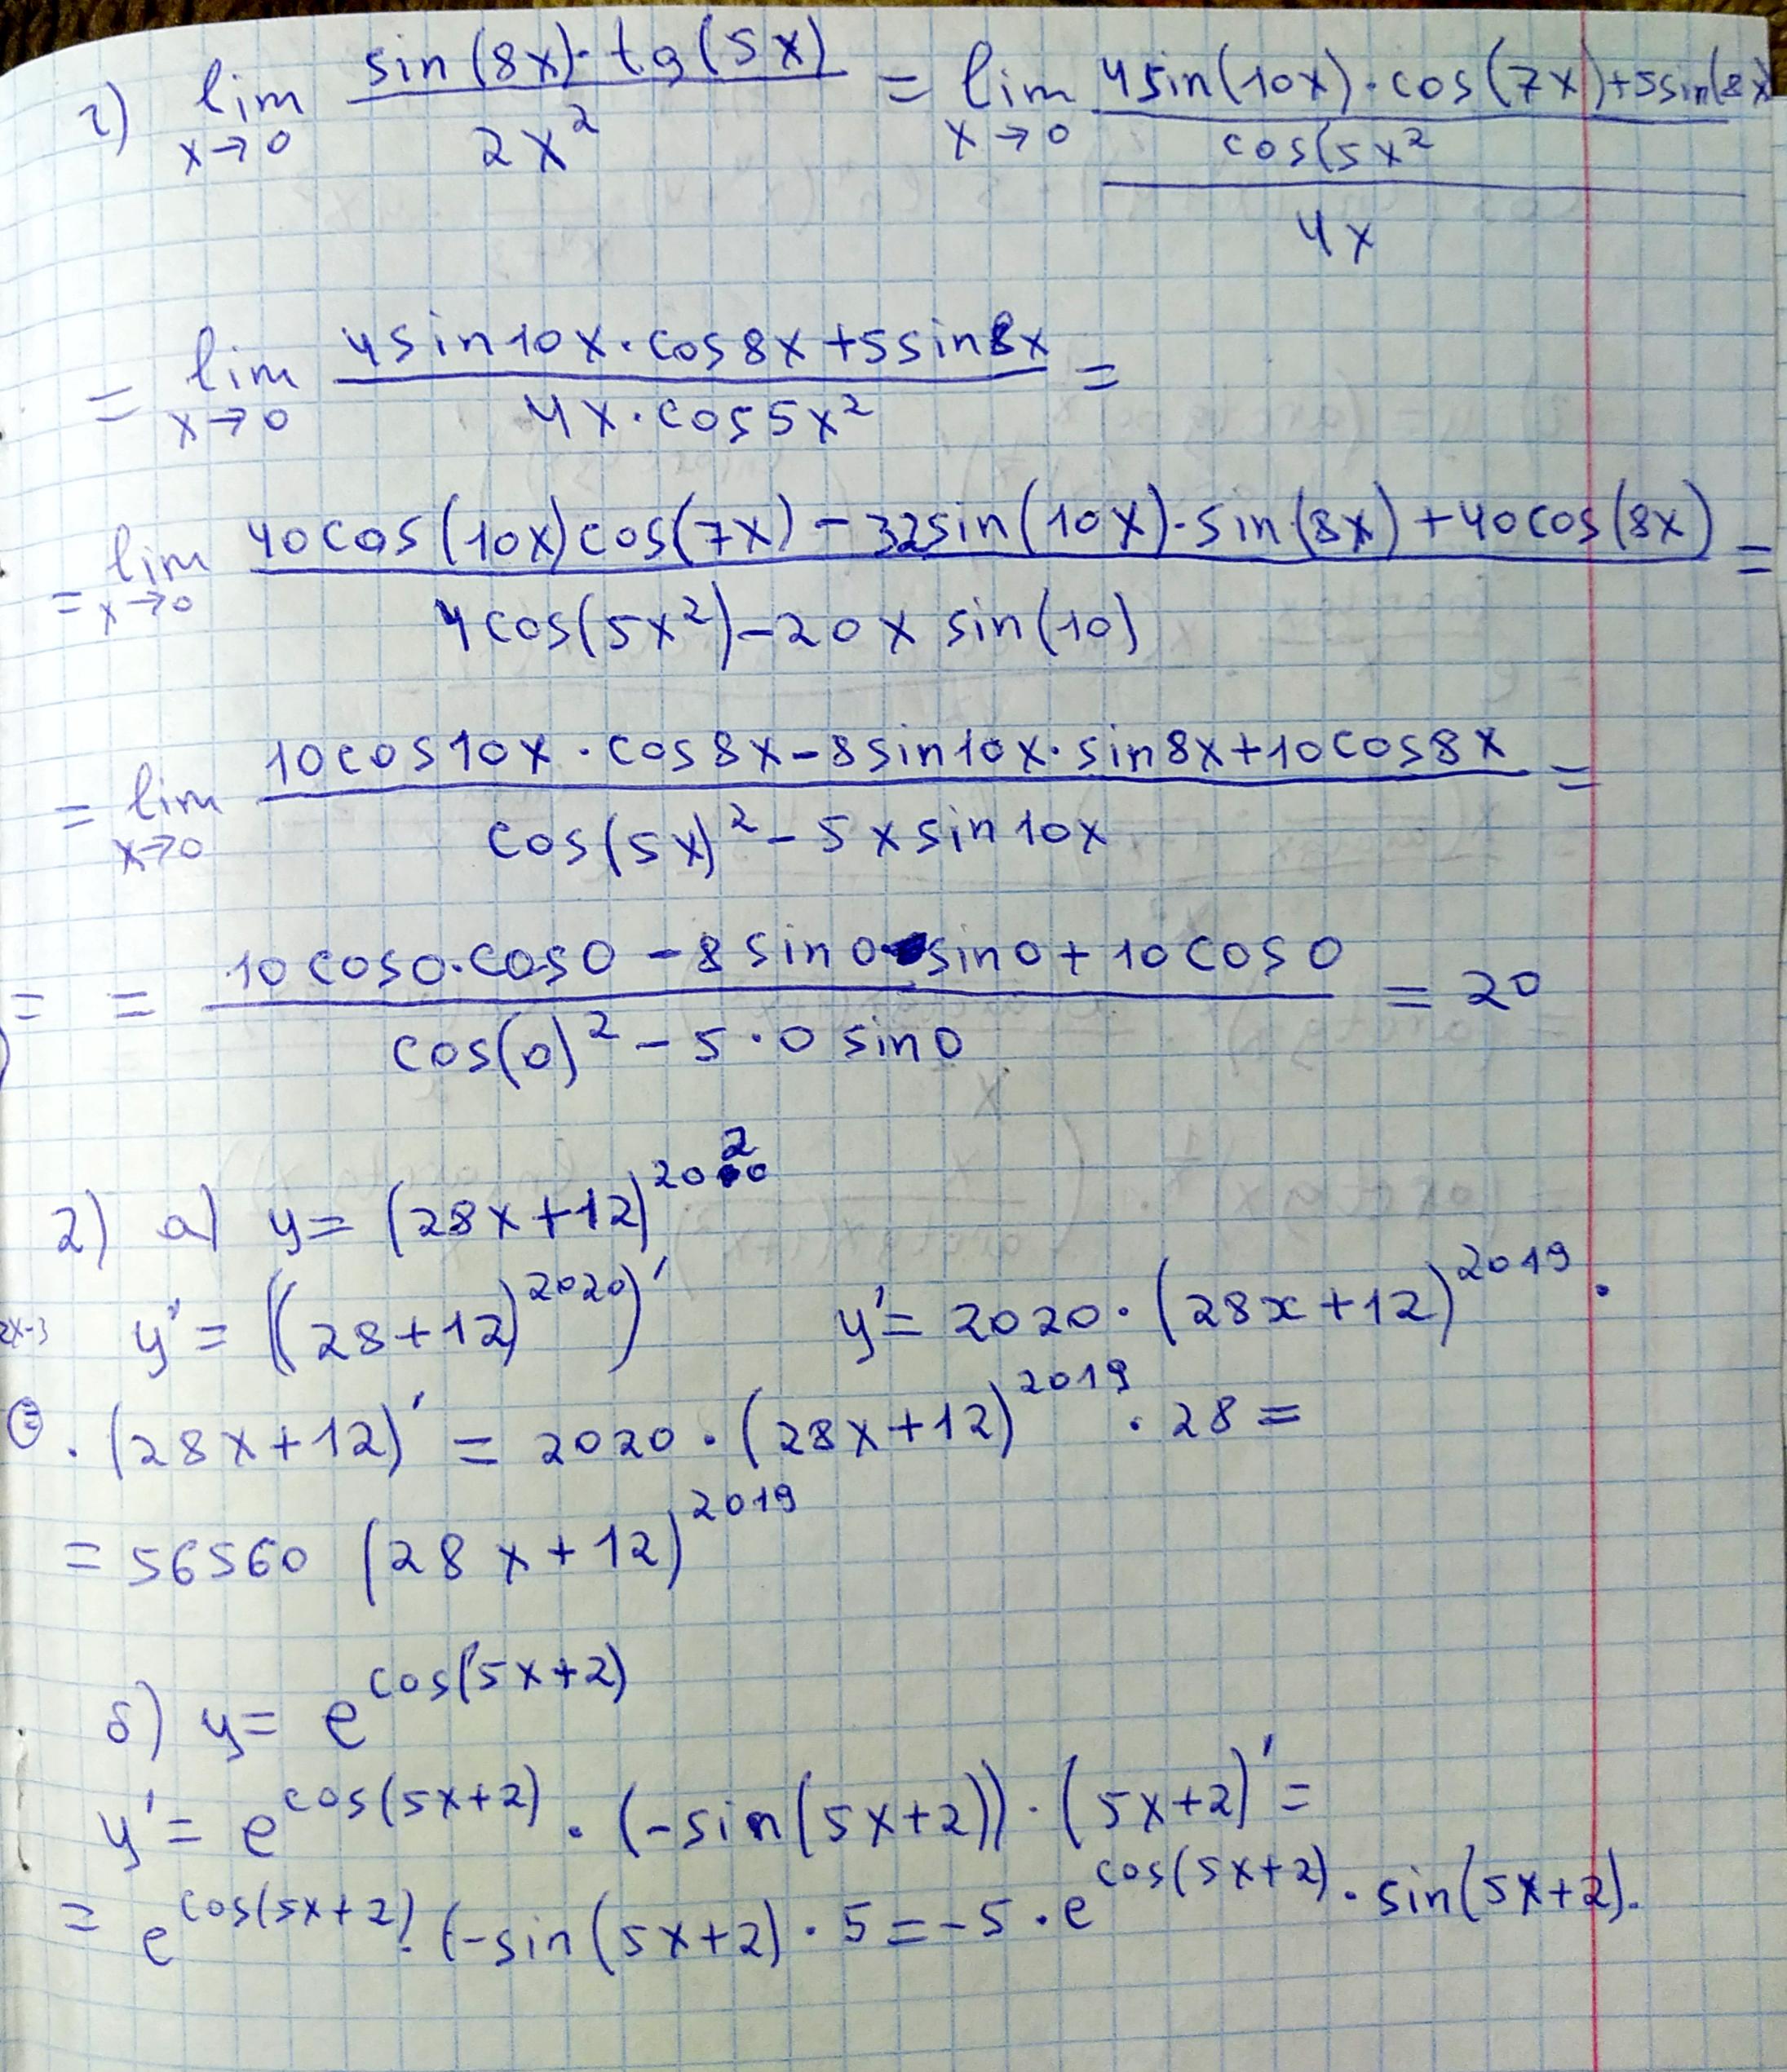 г) lim x→0 sin(8x)·tg(5x) / 2x² = lim x→0 4sin(10x)·cos(7x)+5sin(8x) / cos(5x² / 4x
= lim x→0 4sin10x·cos8x+5sin8x / 4x·cos5x² =
= lim x→0 40cos(10x)cos(7x)-32sin(10x)·sin(8x)+40cos(8x) / 4cos(5x²)-20x sin(10) =
= lim x→0 10cos10x·cos8x-8sin10x·sin8x+10cos8x / cos(5x)²-5xsin10x =
= = 10cos0·cos0-8sin0·sin0+10cos0 / cos(0)²-5·0sin0 = 20
2) а) y= (28x+12)²⁰²⁰
2x-3 y'= ((28+12)²⁰²⁰)' y'= 2020·(28x+12)²⁰¹⁹·
·(28x+12)' = 2020·(28x+12)²⁰¹⁹·28=
= 56560 (28x+12)²⁰¹⁹
б) y= e^cos(5x+2)
y'= e^cos(5x+2)·(-sin(5x+2))·(5x+2)'=
= e^cos(5x+2)·(-sin(5x+2)·5=-5·e^cos(5x+2)·sin(5x+2).